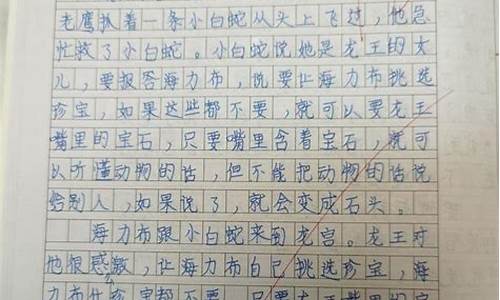 老鹰抓着一条小白蛇从头上飞过，他急
忙救了小白蛇。小白蛇说她是龙王的女
儿，要报答海力布，说要让海力布挑选
珍宝，如果这些都不要，就可以要龙王
嘴里的宝石，只要嘴里含着宝石，就可
以听懂动物的话，但不能把动物的话说
给别人，如果说了，就会变成石头。
海力布跟小白蛇来到龙宫。龙王对
他很感激，让海力布自己挑选珍宝，海
力布什珍宝都不要，只要龙王嘴里的宝